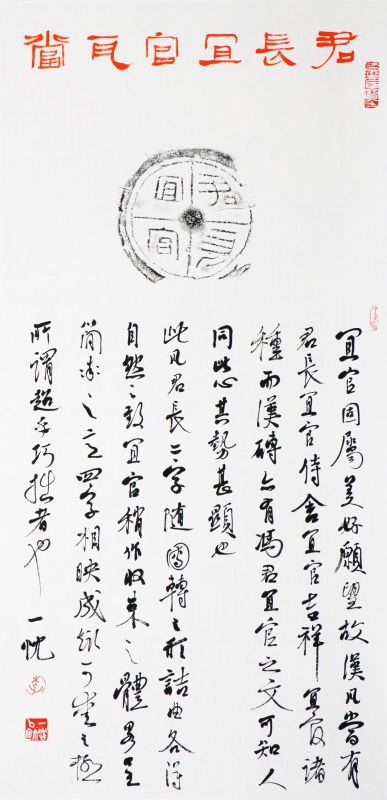 君長宜官瓦當
君長宜官
宜官固屬美好願望故漢瓦當有
君長宜官侍舍宜官吉祥宜官諸
種而漢磚亦有馮君宜官之文可知人
同此心其勢甚顯也
此瓦君長二字隨圓轉之形詰曲各得
自然之致宜官稍作收束之體畧呈
簡率之意四字相映成趣可愛之極
所謂超乎巧拙者也 一忱